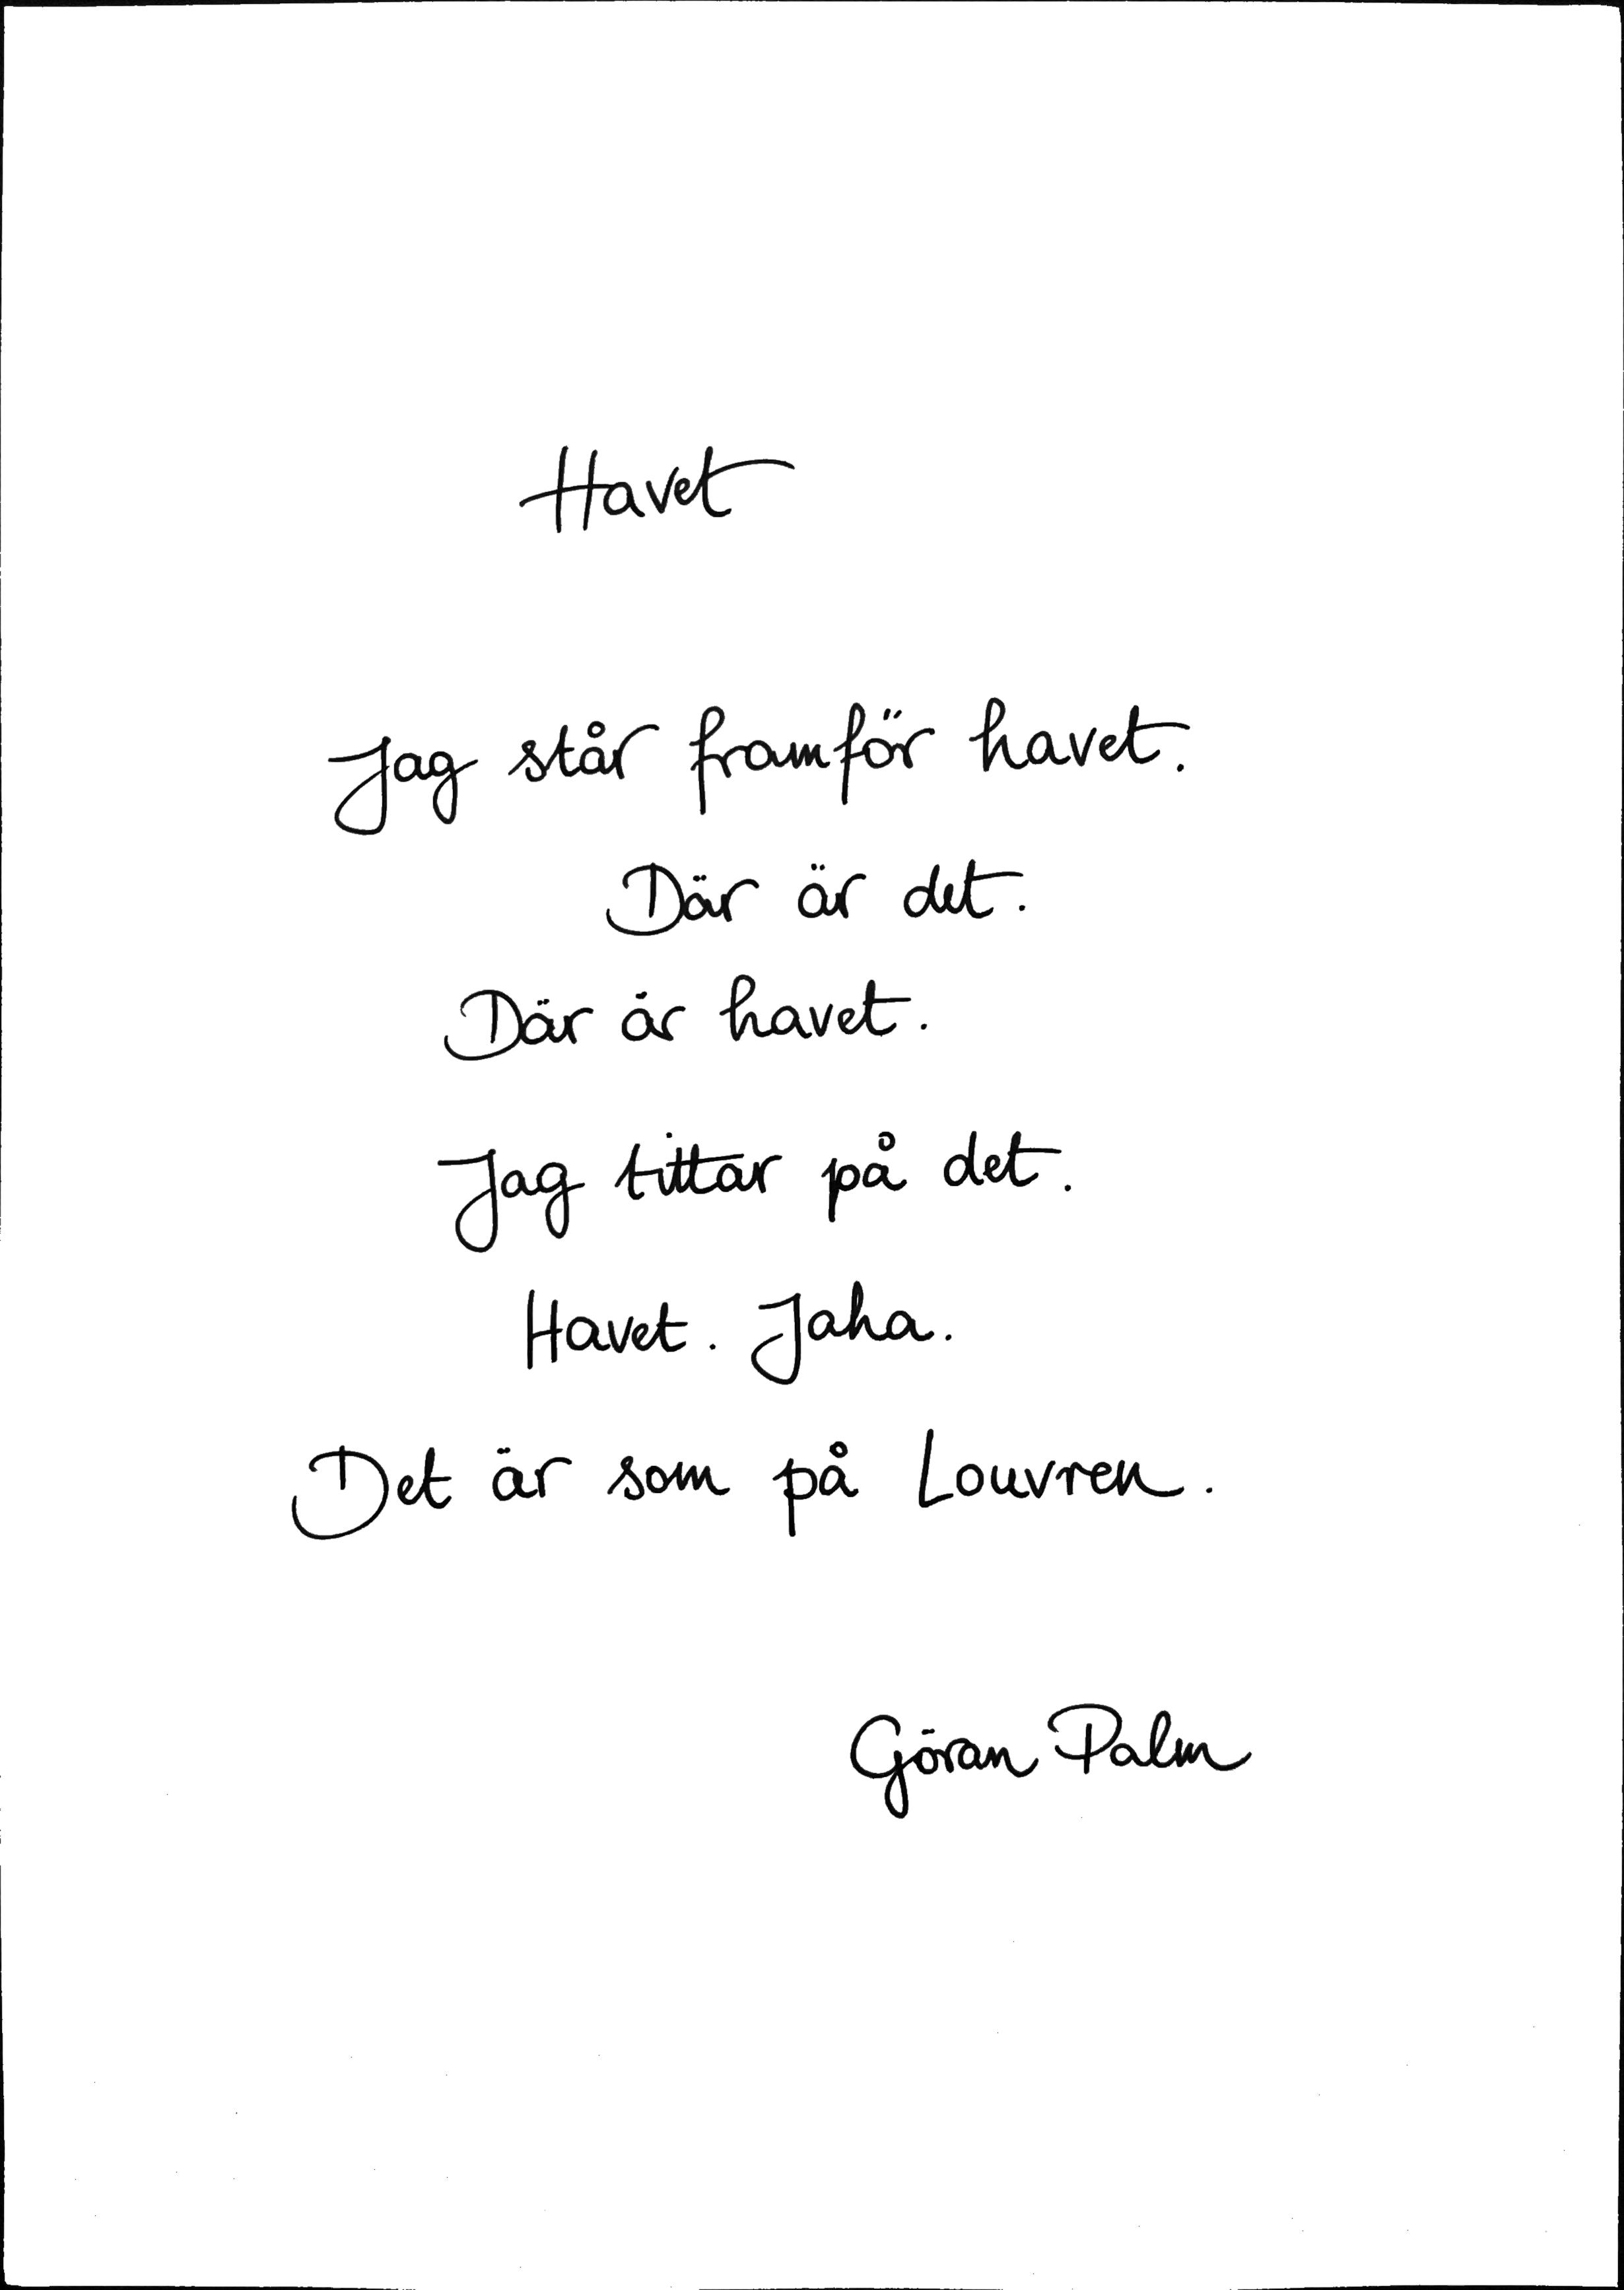 Havet
Jag står framför havet.
Där är det.
Där är havet.
Jag tittar på det.
Havet. Jaha.
Det är som på Louvren.
Göran Palm